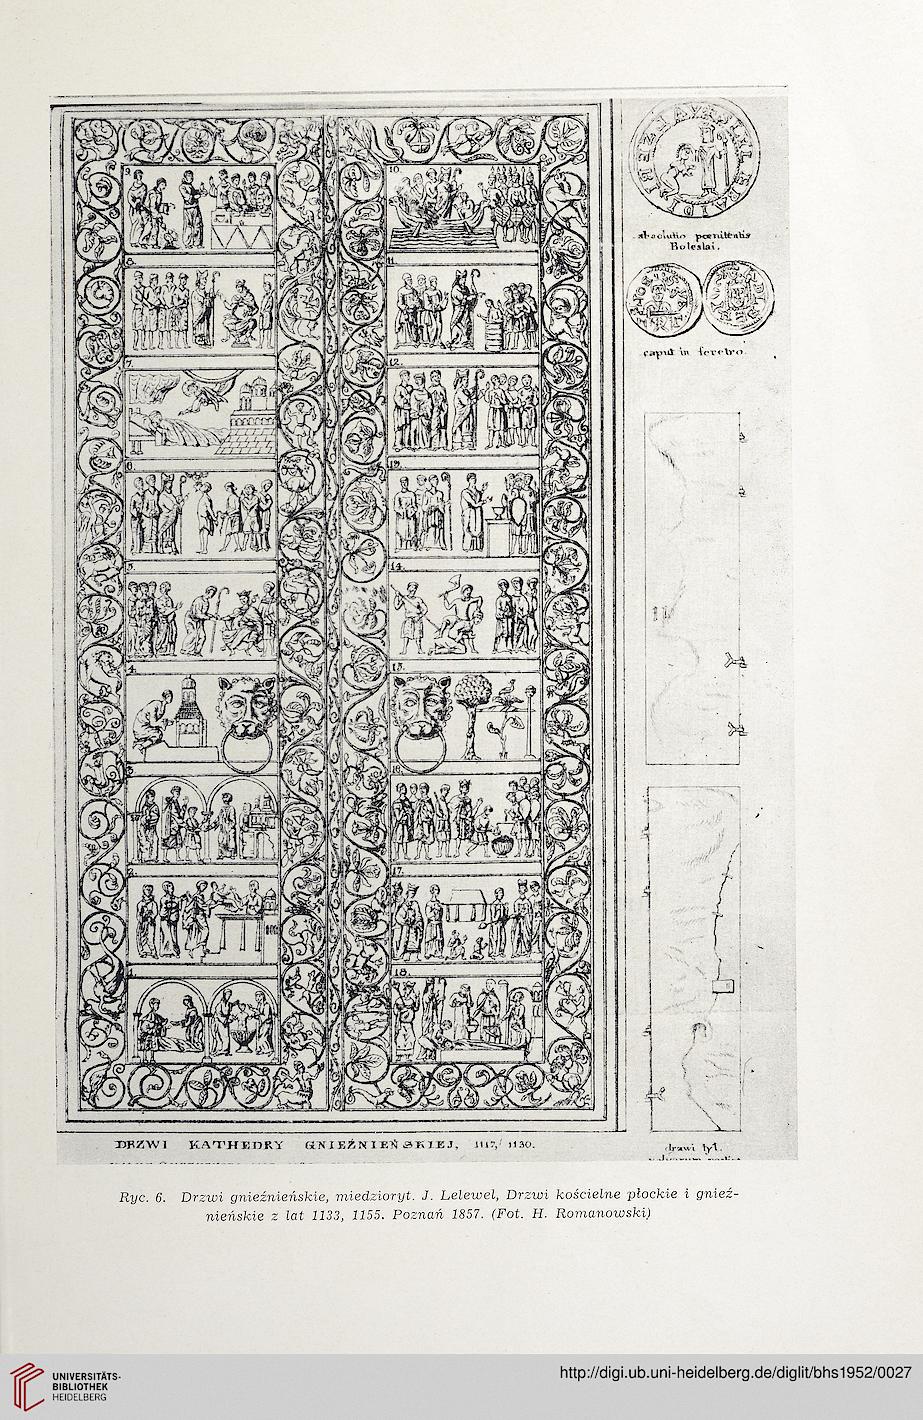 absolutio pœnitentis
Boleslai.
caput in feretro.
9.
10.
8.
11.
7.
12.
6.
13.
5.
14.
4.
15.
3.
16.
2.
17.
1.
18.
DRZWI KATHEDRY GNIEŹNIEŃSKIEJ, 1117, 1130.
drzwi tył.
Ryc. 6. Drzwi gnieźnieńskie, miedzioryt. J. Lelewel, Drzwi kościelne płockie i gnieź-
nieńskie z lat 1133, 1155. Poznań 1857. (Fot. H. Romanowski)
UNIVERSITÄTS-
BIBLIOTHEK
HEIDELBERG
http://digi.ub.uni-heidelberg.de/diglit/bhs1952/0027